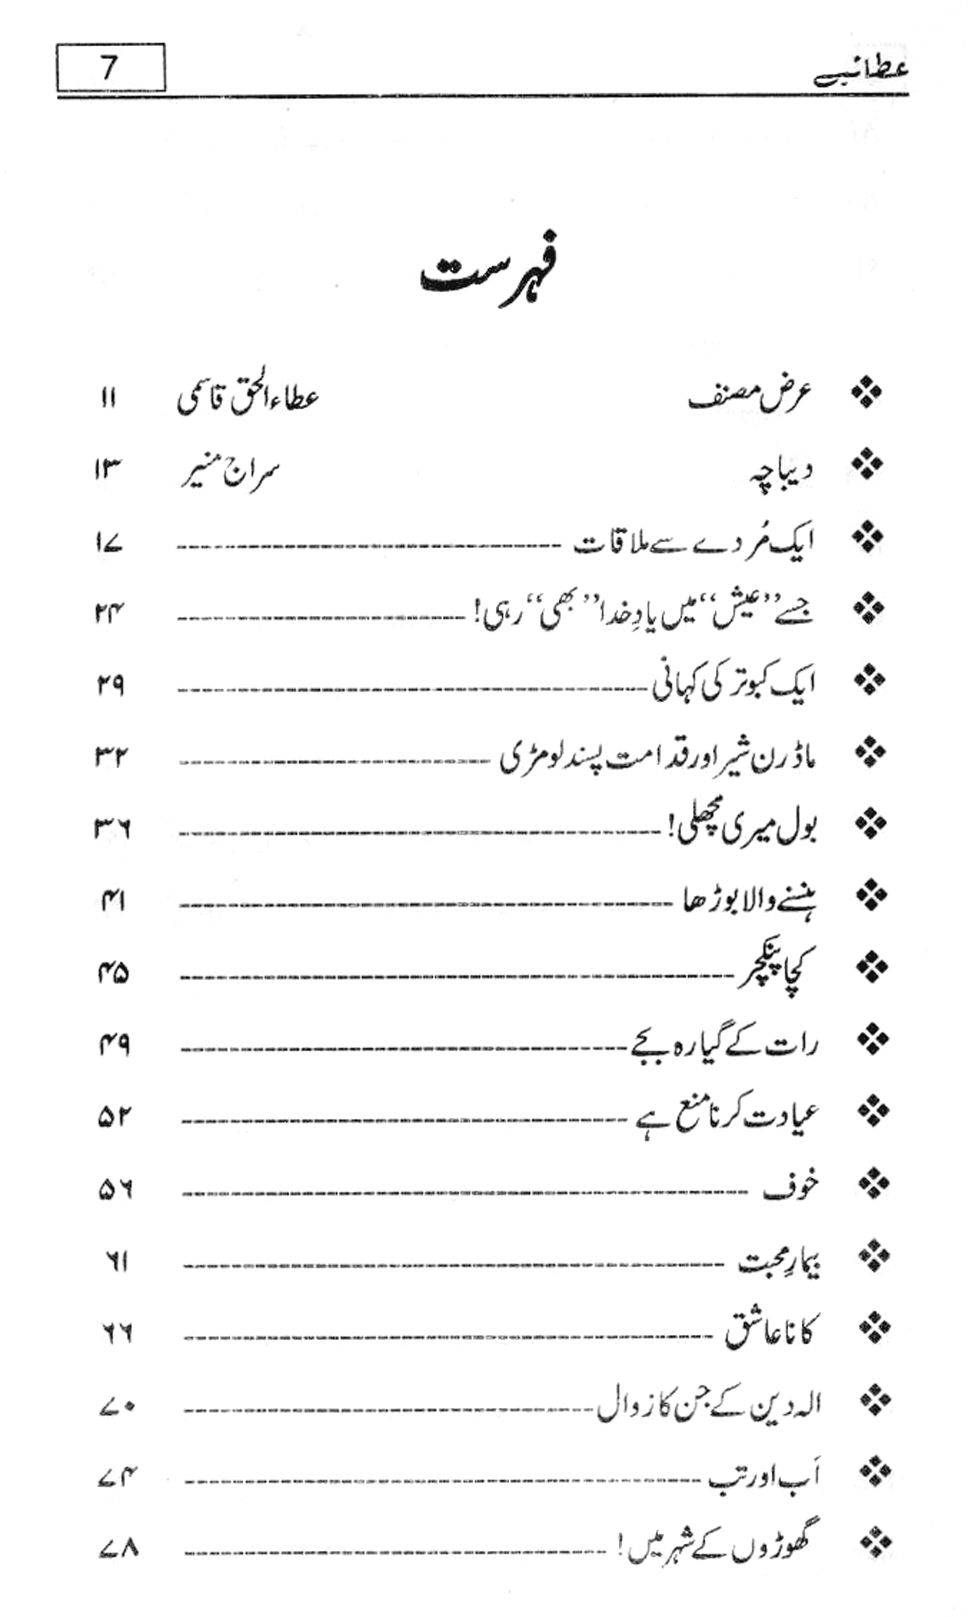 عطائیے 7
فہرست
❖ عرض مصنف عطاء الحق قاسمی ۱۱
❖ دیباچہ سراج منیر ۱۳
❖ ایک مُردے سے ملاقات ۱۷
❖ جسے ’’عیش‘‘ میں یادِ خدا ’’بھی‘‘ رہی! ۲۴
❖ ایک کبوتر کی کہانی ۲۹
❖ ماڈرن شیر اور قدامت پسند لومڑی ۳۲
❖ بول میری مچھلی! ۳۶
❖ ہنسنے والا بوڑھا ۴۱
❖ کچا پنکچر ۴۵
❖ رات کے گیارہ بجے ۴۹
❖ عیادت کرنا منع ہے ۵۲
❖ خوف ۵۶
❖ بیمارِ محبت ۶۱
❖ کانا عاشق ۶۶
❖ الہ دین کے جن کا زوال ۷۰
❖ اَب اور تب ۷۴
❖ گھوڑوں کے شہر میں! ۷۸